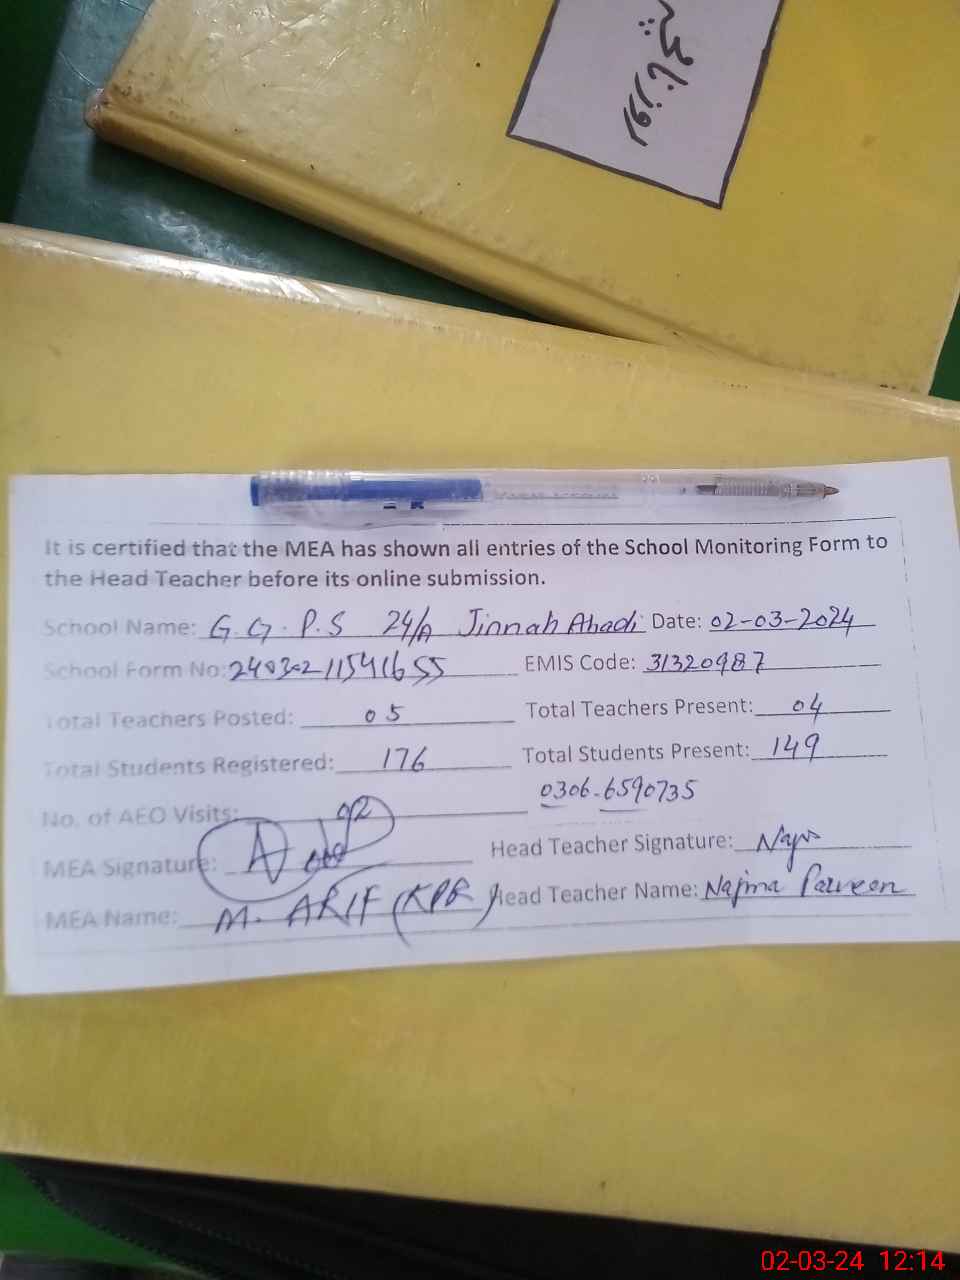 روزنامچہ
It is certified that the MEA has shown all entries of the School Monitoring Form to
the Head Teacher before its online submission.
School Name: G.G.P.S 24/A Jinnah Abadi Date: 02-03-2024
School Form No: 24030211541655 EMIS Code: 31320987
Total Teachers Posted: 05 Total Teachers Present: 04
Total Students Registered: 176 Total Students Present: 149
0306-6590735
No. of AEO Visits: 02
MEA Signature: Head Teacher Signature:
MEA Name: M. ARIF (KPR) Head Teacher Name: Najma Parveen
02-03-24 12:14